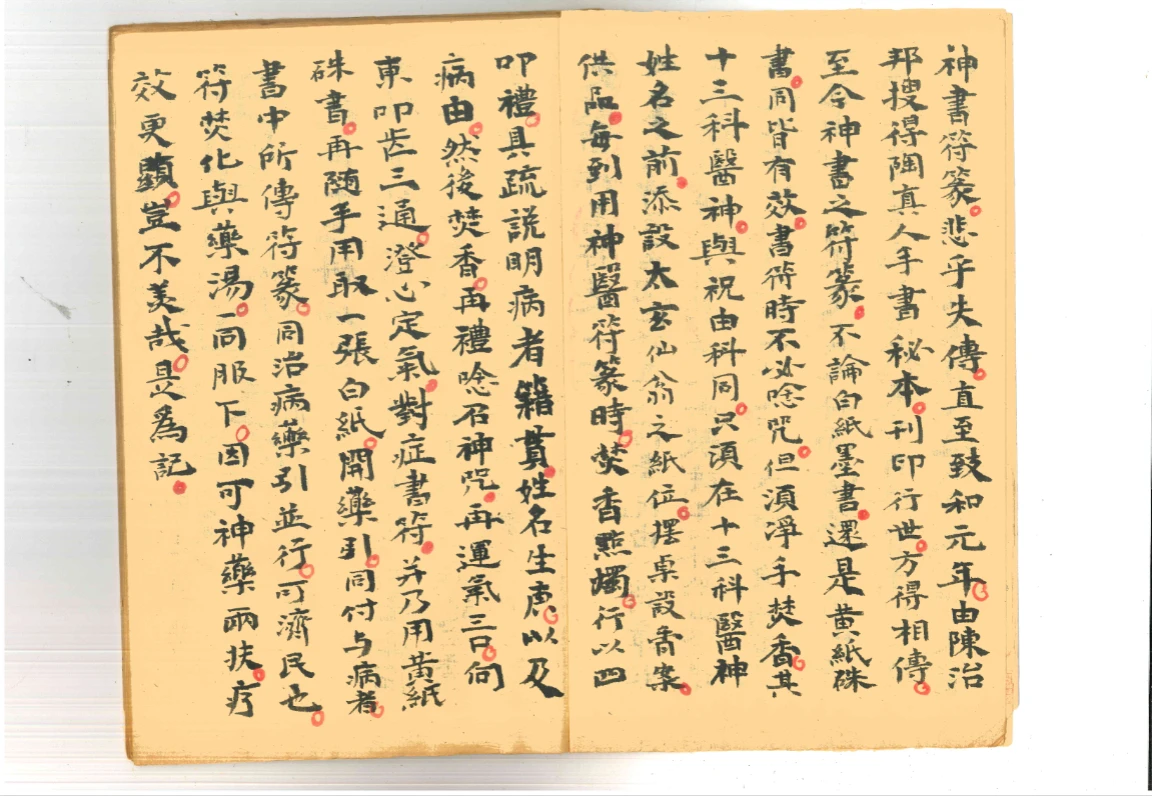 神書符篆。悲乎失傳。直至致和元年。由陳治
邦搜得陶真人手書秘本。刊印行世。方得相傳。
至今神書之符篆。不論白紙墨書。還是黄紙硃
書。同皆有效。書符時不必唸咒。但須凈手焚香。其
十三科醫神。與祝由科同。只須在十三科醫神
姓名之前。添設太玄仙翁之紙位。摆桌設香案。
供品。每到用神醫符篆時。焚香點燭。行以四
叩禮。具疏説明病者籍貫。姓名生庚。以及
病由。然後焚香。再禮唸召神咒。再運氣三口。向
東叩齿三通。澄心定氣。對症書符。并乃用黄紙
硃書。再随手用取一張白紙。開藥引。同付与病者。
書中所傳符篆。同治病藥引並行。可濟民也。
符焚化與藥湯。一同服下。因可神藥兩扶。疗
效更顯。豈不美哉。是為記。